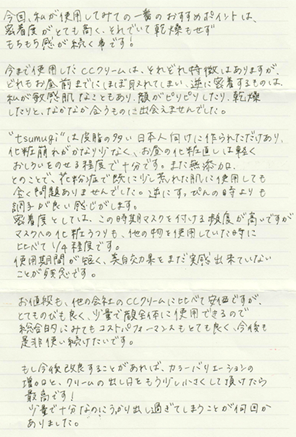 今回、私が使用してみての一番のおすすめポイントは、
密着度がとても高く、それでいて乾燥もせず
もちもち感が続く事です!
今まで使用したCCクリームは、それぞれ特徴はありますが、
どれもお昼前までにほぼ取れてしまい、逆に密着するものは、
私が敏感肌なこともあり、顔がピリピリしたり、乾燥
したりと、なかなか合うものに出会えませんでした。
"tsumugi"は皮脂の多い日本人向けに作られただけあり、
化粧崩れがかなり少なく、お昼の化粧直しは軽く
おしろいをのせる程度で十分です。また無添加
とのことで、花粉症で既に少し荒れた肌に使用しても
全く問題ありませんでした。逆にすっぴんの時よりも
調子が良い感じがします。
密着度としては、この時期マスクを付ける頻度が高いですが
マスクへの化粧うつりも、他の物を使用していた時に
比べて1/4程度です。
使用期間が短く、美白効果をまだ実感出来ていない
ことが残念です。
お値段も、他の会社のCCクリームに比べて安価ですが、
とてものびも良く、少量で顔全体に使用できるので
総合的にみてもコストパフォーマンスもとても良く、今後も
是非使い続けたいです。
もし今後改良することがあれば、カラーバリエーションの
増加と、クリームの出し口をもう少し小さくして頂けたら
最高です!
少量で十分なのにうっかり出し過ぎてしまうことが何回か
ありました。